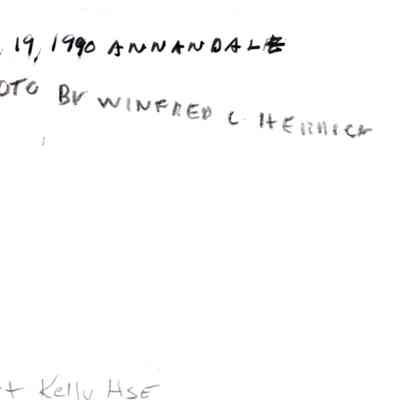 , 19, 1990 ANNANDALE
OTO BY WINFRED C. HERRICK
+ Kelly HSE